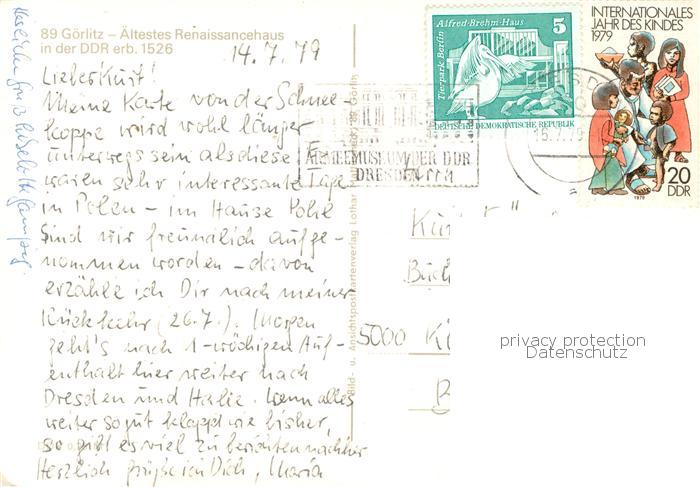 89 Görlitz – Ältestes Renaissancehaus
in der DDR erb. 1526
14.7.79
Lieber Kurt!
Meine Karte von der Schnee-
koppe wird wohl länger
unterwegs sein als diese! Es
waren sehr interessante Tage
in Polen – im Hause Pohl
sind wir freundlich aufge-
nommen worden – davon
erzähle ich Dir nach meiner
Rückkehr (26.7.). Morgen
geht's nach 1-wöchigen Auf-
enthalt hier weiter nach
Dresden und Halle. Wenn alles
weiter so gut klappt wie bisher,
so gibt es viel zu berichten nachher
Herzlich grüße ich Dich, Maria
Bild- u. Ansichtspostkartenverlag Lothar
89 Görlitz
ARMEEMUSEUM DER DDR
DRESDEN
Alfred-Brehm-Haus
5
Tierpark Berlin
DEUTSCHE DEMOKRATISCHE REPUBLIK
INTERNATIONALES
JAHR DES KINDES
1979
20
DDR
1979
5000
privacy protection
Datenschutz